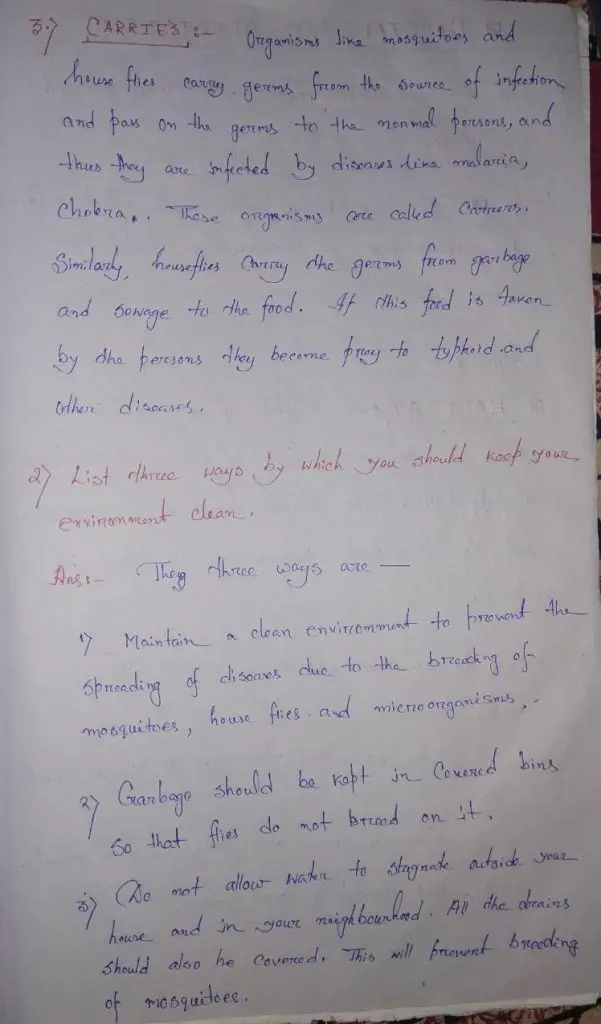 3.) CARRIES :- Organisms like mosquitoes and
house flies carry germs from the source of infection
and pass on the germs to the normal persons, and
thus they are infected by diseases like malaria,
Cholera.. These organisms are called Carriers.
Similarly, houseflies carry the germs from garbage
and sewage to the food. If this food is taken
by the persons they become prey to typhoid and
other diseases.
2) List three ways by which you should keep your
environment clean.
Ans:- They three ways are —
1) Maintain a clean environment to prevent the
spreading of diseases due to the breeding of
mosquitoes, house flies and microorganisms,.
2) Garbage should be kept in Covered bins
so that flies do not breed on it.
3) Do not allow water to stagnate outside your
house and in your neighbourhood. All the drains
should also be covered. This will prevent breeding
of mosquitoes.